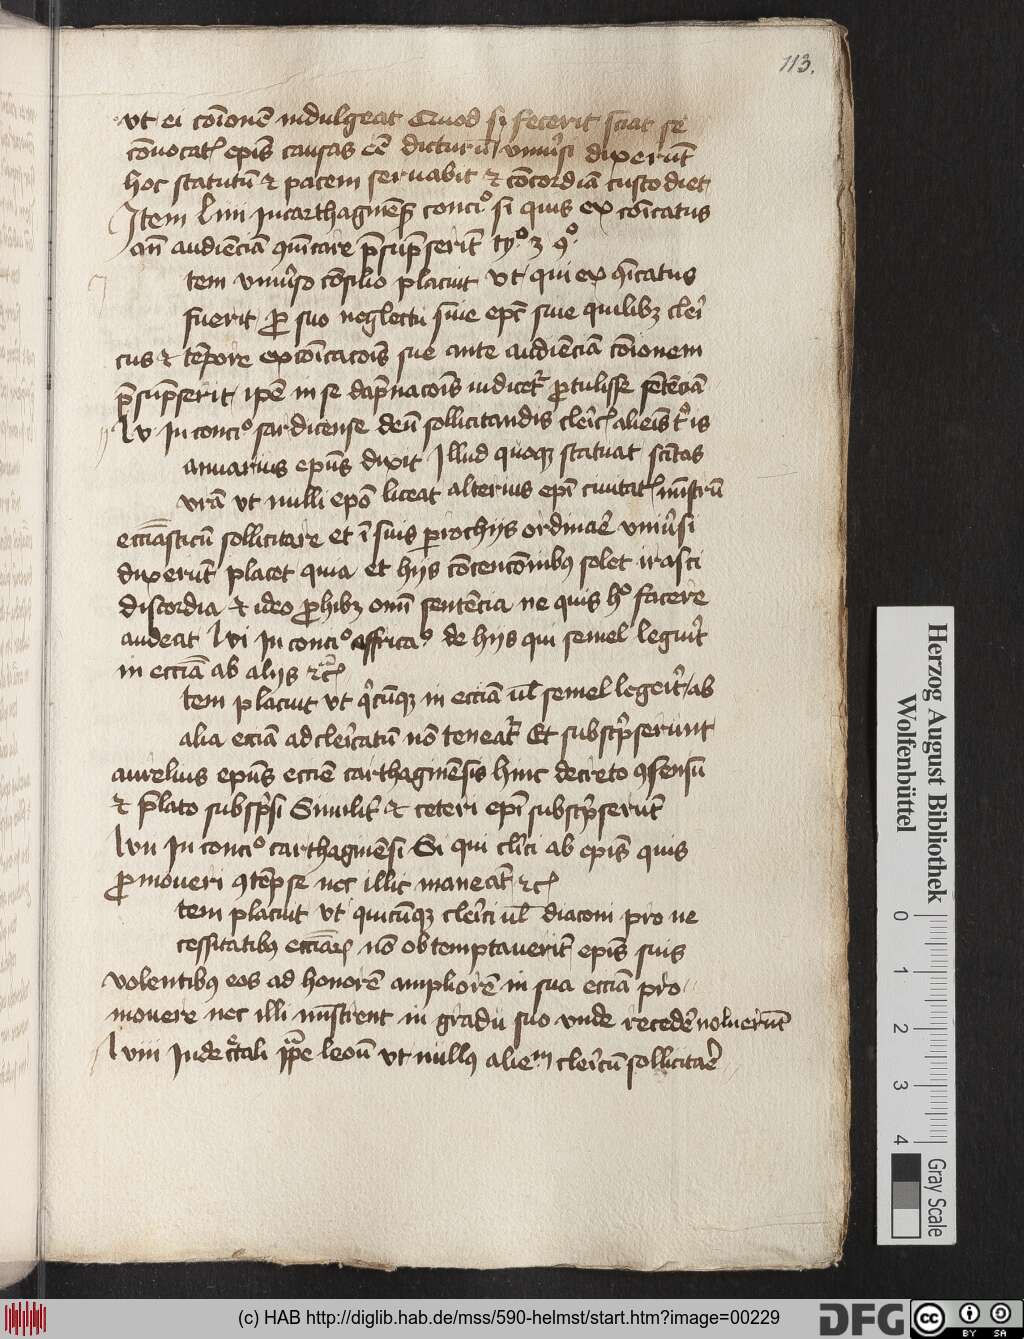 113.
vt ei cōionē indulgeat Quod si fecerit sciat se
cōuocatꝭ epīs causas eē dicturū vniūsi dixerūt
hoc statutū et pacem seruabit et cōcordiā custodiet
Item liiii In carthaginēsi concio si quis excōicatus
an̄ audiēciā cōicare p̄sūpserit
tem vniūso cōsilio placuit vt qui excōicatus
fuerit ꝓ suo neglectu siue epc̄ siue quilibꝫ cleri
cus et tēpore excōicacōis sue ante audiēciā cōionem
p̄sūpserit ipē in se dāpnacōis iudicetr̄ ꝓtulisse sētēciā
lv In concio sardicense de nō sollicitandis cler̄icꝭ alienis
anuarius epūs dixit Illud quoqꝫ statuat sc̄itas
vrā vt nulli epō liceat alterius epī ciuitatꝭ mīstrū
ecciāsticū sollicitare et ī suis ꝑrochijs ordinar̄e vniūsi
dixerūt placet quia et hijs cōtencōnibꝰ solet irasci
discordia et ideo ꝓhibꝫ omī sentēcia ne quis hº facere
audeat lvi In concio affricao de hijs qui semel legūit
in ecciā ab alijs etcꝭ
tem placuit vt qicūqꝫ in ecciā ul̄ semel legerit / ab
alia ecciā ad cler̄icatū nō teneatr̄ Et subscpserunt
aurelius epūs eccīe carthaginēsis huic decreto ꝯsensū
et p̄lato subsp̄si Similitr̄ et ceteri epī subscp̄serūt
lvii In concio carthaginēsi Si qui cl̄ici ab epīs quis
ꝓmoueri ꝯtēpse nec illic maneatr̄ etcꝭ
tem placuit vt quicūqꝫ cler̄ici ul̄ diaconi pro ne
cessitatibꝰ ecciaꝝ nō obtemptauerīt epīs suis
volentibꝰ eos ad honorē ampliorē in sua ecciā pro
mouere nec illi mīstrent in gradu suo vnde recedēr noluerūt
lviii In decr̄tali ppe leoīs vt nullꝰ alienm cler̄icū sollicitar̄e
Herzog August Bibliothek
Wolfenbüttel
0 1 2 3 4
Gray Scale
(c) HAB http://diglib.hab.de/mss/590-helmst/start.htm?image=00229
DFG
cc BY SA